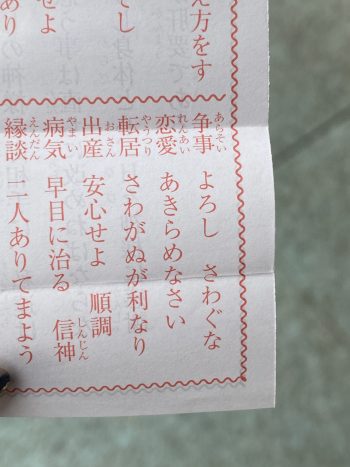 え方をす
てし
せよ
あり
あらそい
争事 よろし さわぐな
れんあい
恋愛 あきらめなさい
やうつり
転居 さわがぬが利なり
おさん
出産 安心せよ 順調
やまい しんじん
病気 早目に治る 信神
えんだん
縁談 二人ありてまよう